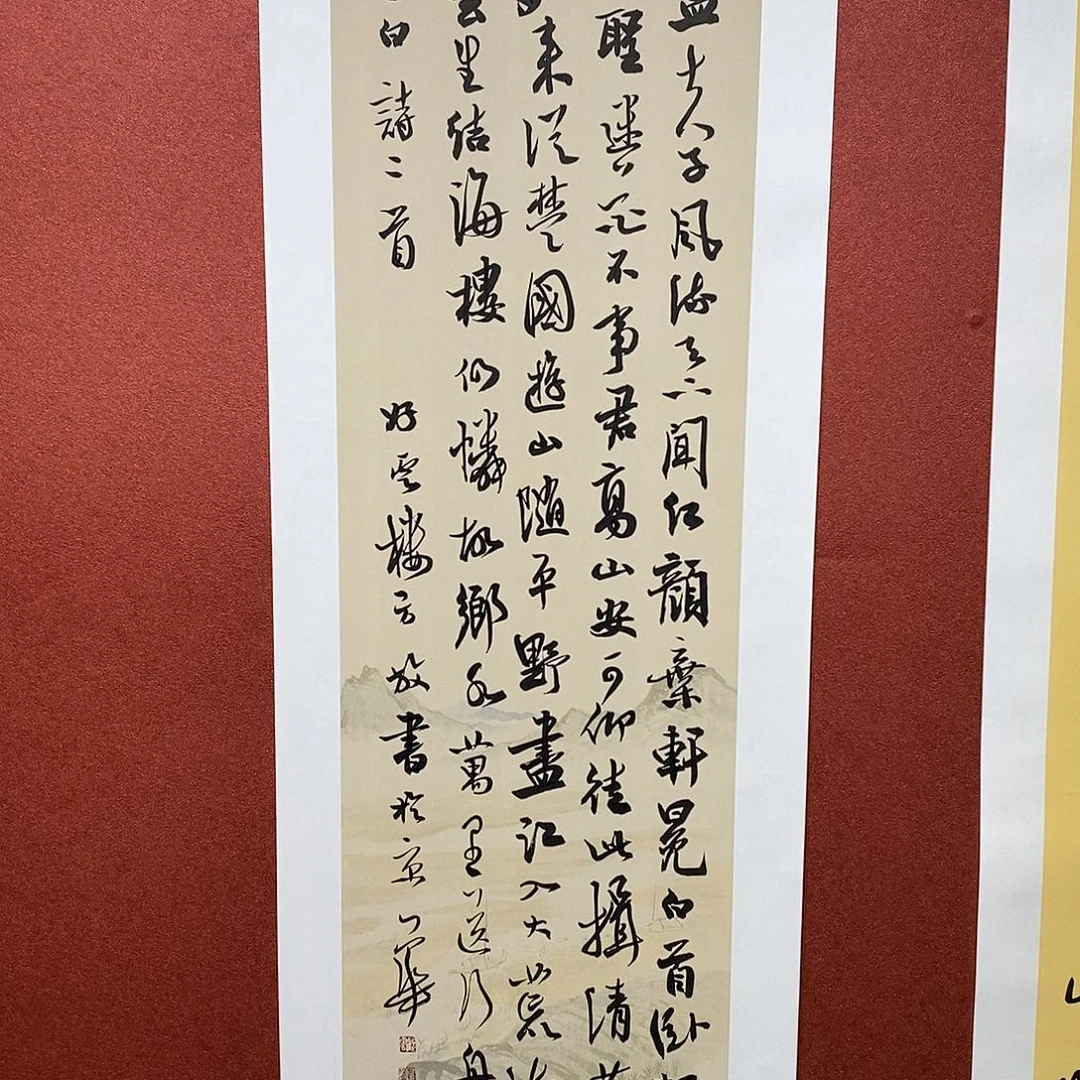 孟夫子風流天下聞紅顔棄軒冕白首卧
聖迷花不事君高山安可仰徒此揖清芬
來從楚國遊山隨平野盡江入大荒流
雲生結海樓仍憐故鄉水萬里送行舟
白詩二首 好雲樓方放書於京華